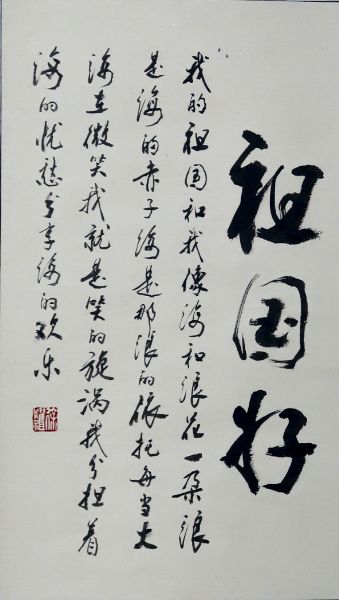 祖国好
我的祖国和我像海和浪花一朵浪
是海的赤子海是那浪的依托每当大
海在微笑我就是笑的旋涡我分担着
海的忧愁分享海的欢乐